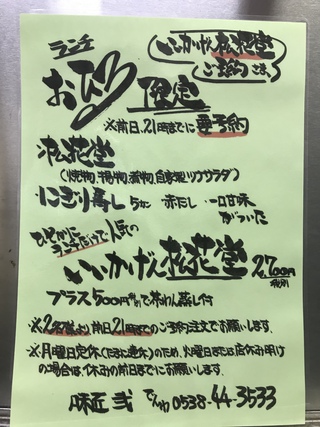 ランチ
いいかげん松花堂
ご予約
おひる限定
※前日、21時までに要予約
松花堂
(焼物、揚物、煮物、自家製ツナサラダ)
にぎり寿し 5カン 赤だし 一口甘味
がついた
ひそかに
人気の
いいかげん松花堂 2,700円
税別
プラス500円で茶わん蒸し付
※2名様より前日21時までのご予約注文でお願いします。
※月曜日定休(たまに連休)のため、火曜日または店休み明け
の場合は、休みの前日までにお願いします。
味匠 弐 でんわ 0538-44-3533